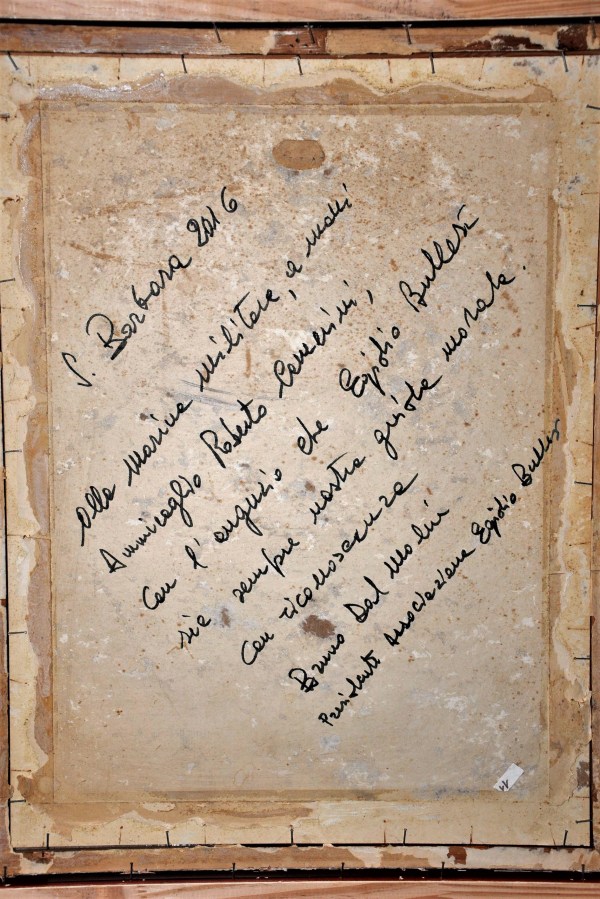 S. Barbara 2016
Alla Marina Militare, a mani
Ammiraglio Roberto Camerini,
Con l'augurio che Egidio Bullesi
sia sempre nostra guida morale.
Con riconoscenza
Bruno Dal Molin
Presidente Associazione Egidio Bullesi